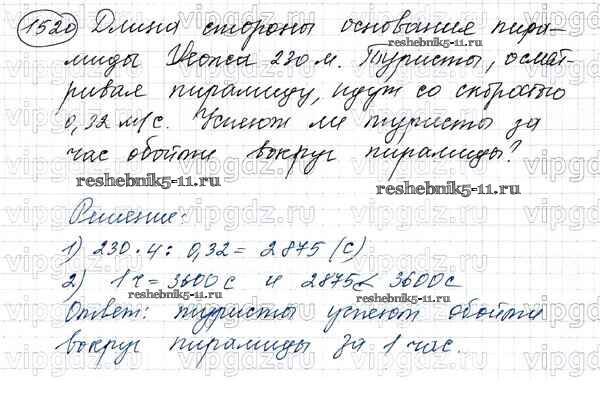 1520 Длина стороны основания пира-
миды Хеопса 230 м. Туристы, осмат-
ривая пирамиду, идут со скоростью
0,32 м/с. Успеют ли туристы за
час обойти вокруг пирамиды?
reshebnik5-11.ru
reshebnik5-11.ru
reshebnik5-11.ru
Решение:
1) 230 · 4 : 0,32 = 2875 (с)
2) 1 ч = 3600 с и 2875 < 3600 с
reshebnik5-11.ru
Ответ: туристы успеют обойти
вокруг пирамиды за 1 час.